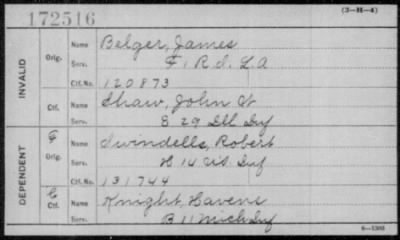 172516
(3-H-4)
INVALID
Orig.
Name Belger, James
Serv. F. 1 R.I. L A
Ctf. No. 120873
Ctf.
Name Shaw, John W
Serv. 8 29 Ill Inf
DEPENDENT
F
Orig.
Name Swindells, Robert
Serv. H 14 U.S. Inf
Ctf. No. 131744
C
Ctf.
Name Knight, Havens
Serv. B 11 Mich Inf